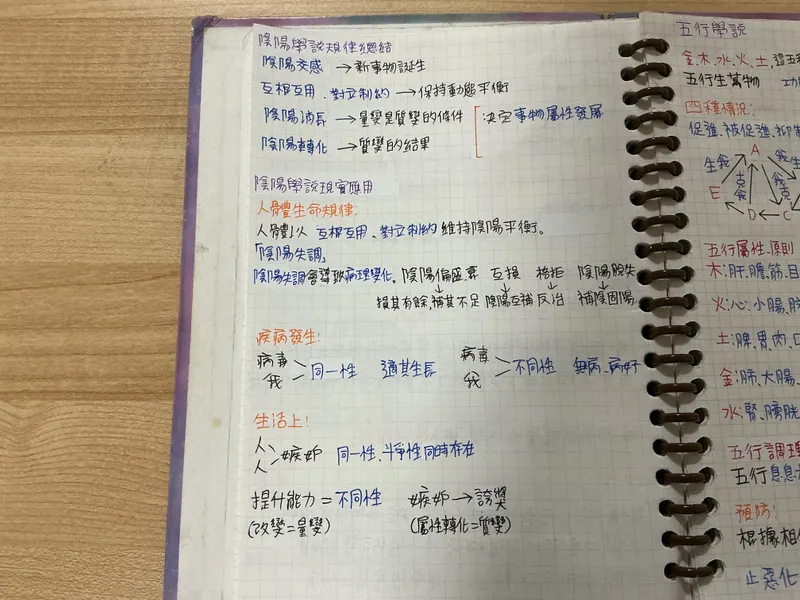 陰陽學說規律總結
陰陽交感 →新事物誕生
互根互用、對立制約→保持動態平衡
陰陽消長 →量變是質變的條件 決定事物屬性發展
陰陽轉化 →質變的結果
陰陽學說現實應用
人體生命規律:
人體以 互根互用、對立制約 維持陰陽平衡。
「陰陽失調」
陰陽失調會導致病理變化。陰陽偏盛、衰 互損 格拒 陰陽脫失
↓ ↓ ↓ ↓
損其有餘,補其不足 陰陽互補 反治 補陰固陽
疾病發生:
病毒
我 >同一性 適其生長
病毒
我 >不同性 無病、病好
生活上:
人
人 >嫉妒 同一性、斗爭性同時存在
提升能力=不同性 嫉妒→誇獎
(改變=量變) (屬性轉化=質變)
五行學說
金、木、水、火、土,這五
五行生萬物
四種情況:
促進、被促進、抑制
A
生我 我生
克我 我克
E
D ← C
五行屬性、原則
木:肝、膽、筋、目
火:心、小腸、
土:脾、胃、肉、口
金:肺、大腸、
水:腎、膀胱、
五行調理
五行息息
預防:
根據相
止惡化